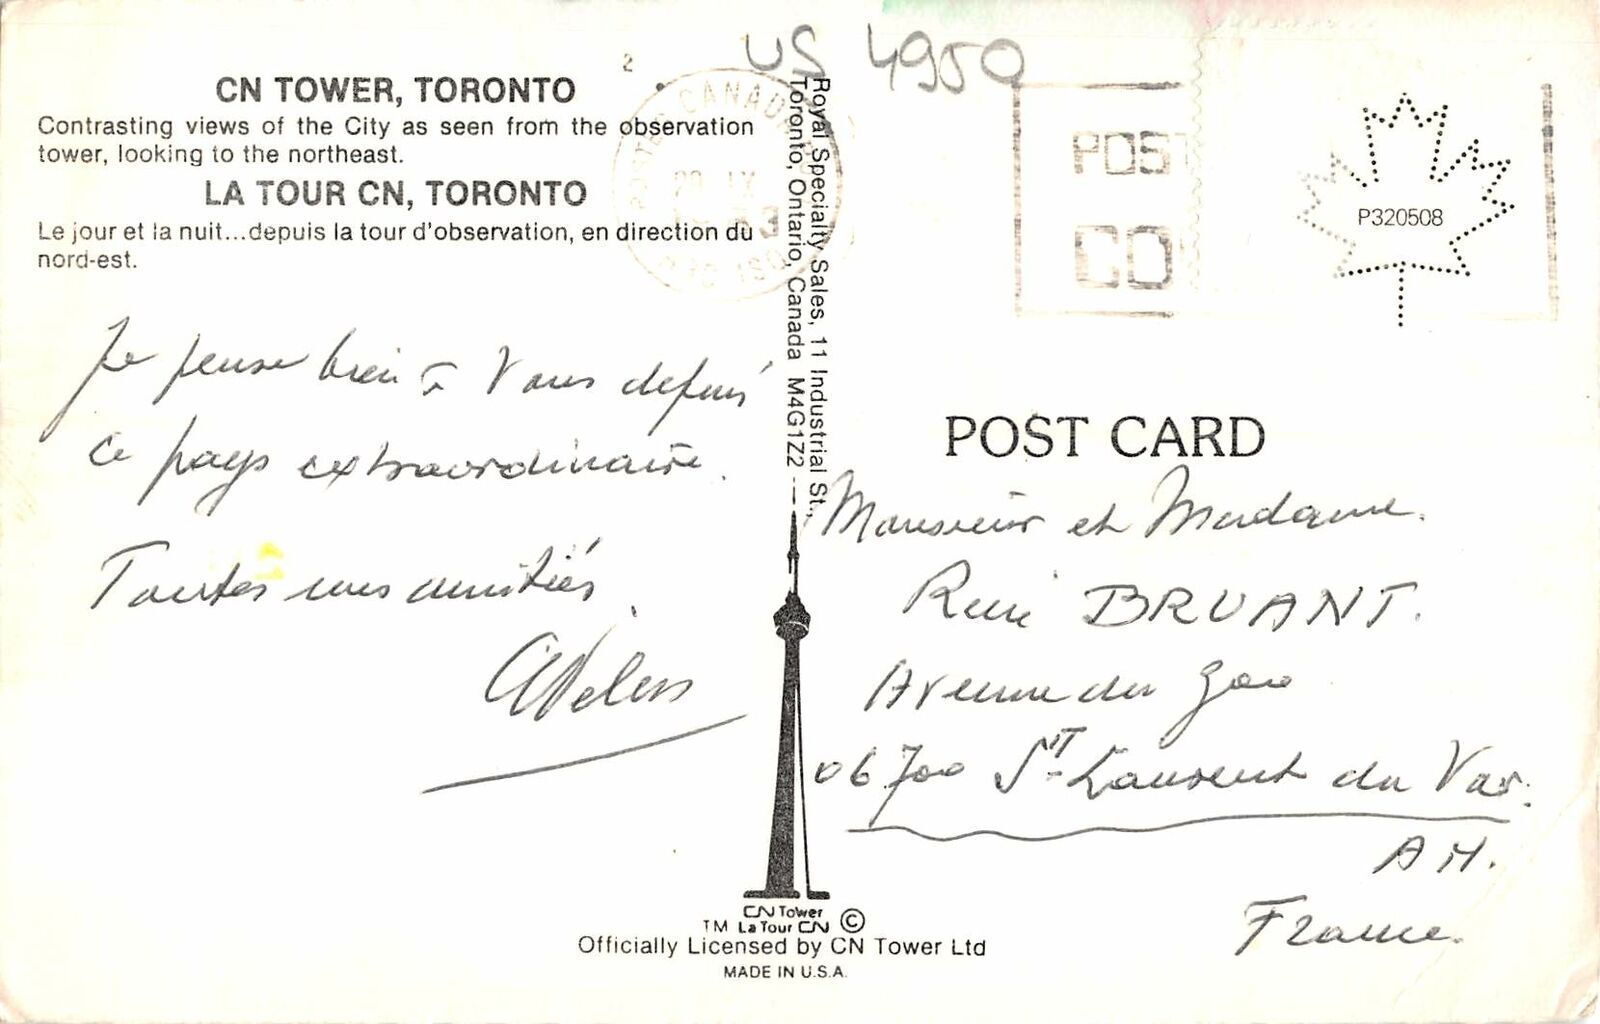 US 4950
2
CN TOWER, TORONTO
Contrasting views of the City as seen from the observation
tower, looking to the northeast.
LA TOUR CN, TORONTO
Le jour et la nuit...depuis la tour d'observation, en direction du
nord-est.
POSTES CANADA
POST
CO
P320508
Royal Specialty Sales, 11 Industrial St.,
Toronto, Ontario, Canada M4G1Z2
Je pense bien à Vous depuis
ce pays extraordinaire.
Toutes mes amitiés.
POST CARD
Monsieur et Madame.
René BRUANT.
Avenue du
06700 ST Laurent du Var.
A M.
France.
CN Tower
TM La Tour CN ©
Officially Licensed by CN Tower Ltd
MADE IN U.S.A.